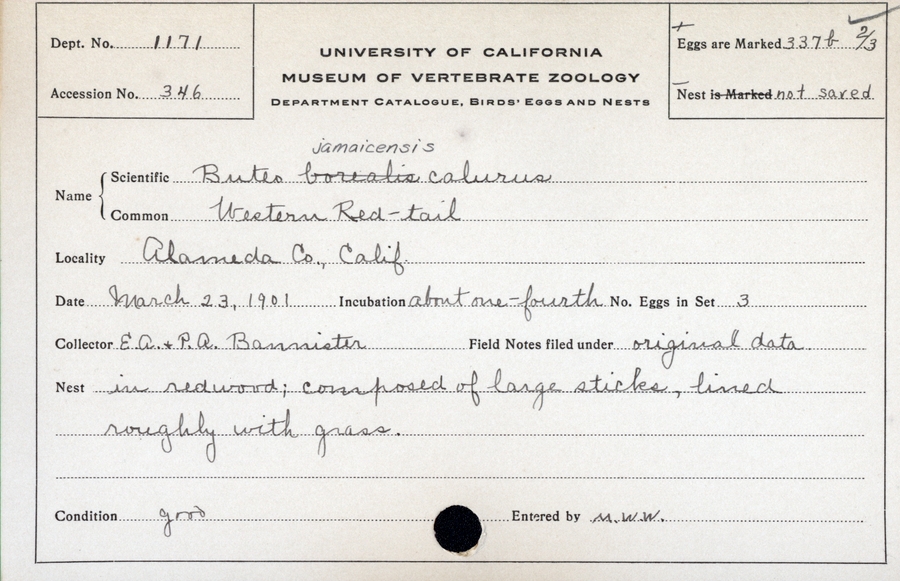 Dept. No. 1171
Accession No. 346
UNIVERSITY OF CALIFORNIA
MUSEUM OF VERTEBRATE ZOOLOGY
DEPARTMENT CATALOGUE, BIRDS' EGGS AND NESTS
Eggs are Marked 337b 2/3
Nest is Marked not saved
jamaicensis
Name Scientific Buteo borealis calurus
Common Western Red-tail
Locality Alameda Co., Calif.
Date March 23, 1901 Incubation about one-fourth No. Eggs in Set 3
Collector E.A. + P.A. Bannister Field Notes filed under original data
Nest in redwood; composed of large sticks, lined
roughly with grass.
Condition good Entered by M.W.W.